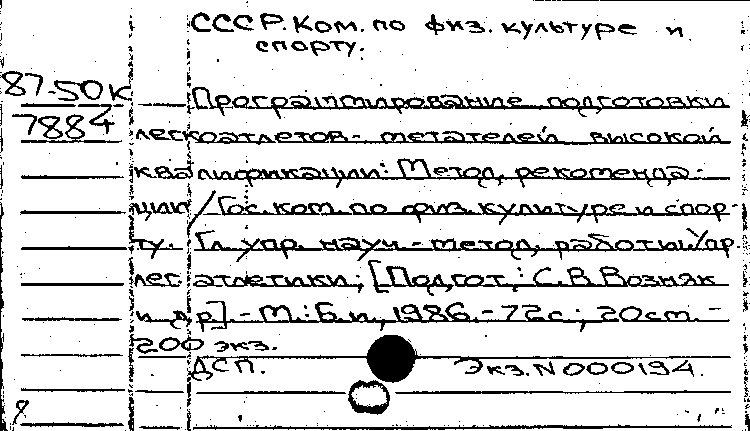 СССР. Ком. по физ. культуре и
спорту.
87-50к
7884
Программирование подготовки
легкоатлетов - метателей высокой
квалификации: Метод. рекоменда-
ции / Гос. ком. по физ. культуре и спор-
ту. Гл. упр. науч.-метод. работы, Упр.
лег. атлетики; [Подгот.: С. В. Возняк
и др.]. - М.: Б. и., 1986. - 72с.; 20см. -
200 экз.
ДСП. Экз. N 000194.